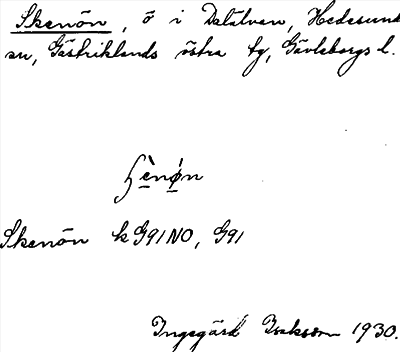 Skenön, ö i Dalälven, Hedesunda
sn, Gästriklands östra tg, Gävleborgs l.
ʃènǿn
Skenön k G91NO, G91
Ingegärd Isaksson 1930.